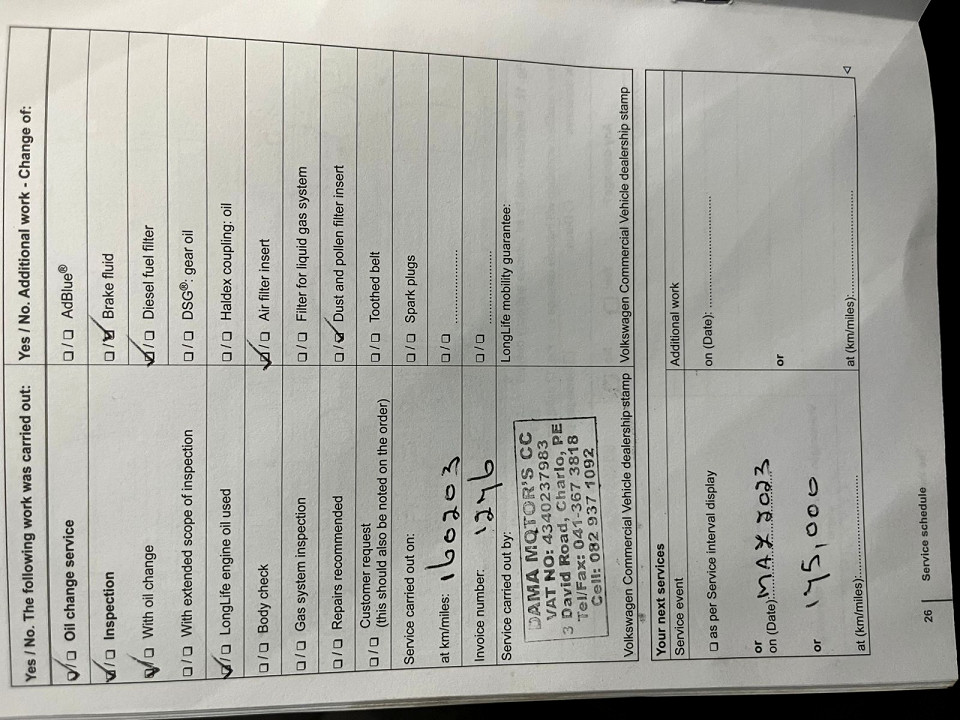 Yes / No. The following work was carried out:
☑/☐ Oil change service
☑/☐ Inspection
☑/☐ With oil change
☐/☐ With extended scope of inspection
☑/☐ LongLife engine oil used
☐/☐ Body check
☐/☐ Gas system inspection
☐/☐ Repairs recommended
☐/☐ Customer request
(this should also be noted on the order)
Service carried out on:
at km/miles: 160203
Invoice number: 1276
Service carried out by:
DAMA MOTOR'S CC
VAT NO: 4340237983
3 David Road, Charlo, PE
Tel/Fax: 041-367 3818
Cell: 082 937 1092
Volkswagen Commercial Vehicle dealership stamp
Yes / No. Additional work - Change of:
☐/☐ AdBlue®
☐/☑ Brake fluid
☑/☐ Diesel fuel filter
☐/☐ DSG®: gear oil
☐/☐ Haldex coupling: oil
☑/☐ Air filter insert
☐/☐ Filter for liquid gas system
☐/☑ Dust and pollen filter insert
☐/☐ Toothed belt
☐/☐ Spark plugs
☐/☐ ....................
☐/☐ ....................
LongLife mobility guarantee:
Volkswagen Commercial Vehicle dealership stamp
Your next services
Service event
☐ as per Service interval display
or
on (Date): MAY 2023
or
175,000
at (km/miles):....................
Additional work
on (Date): ....................
or
at (km/miles):....................
26 | Service schedule